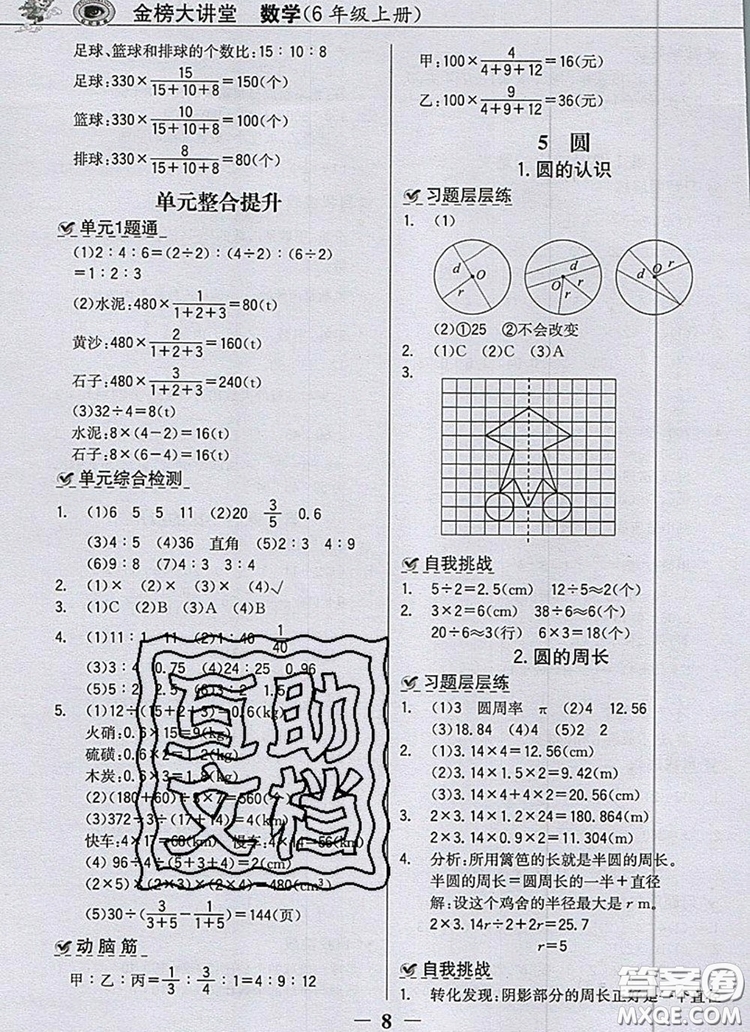 金榜大讲堂 数学(6年级上册)
足球、篮球和排球的个数比:15∶10∶8
足球:330×15/(15+10+8)=150(个)
篮球:330×10/(15+10+8)=100(个)
排球:330×8/(15+10+8)=80(个)
单元整合提升
单元1题通
(1)2∶4∶6=(2÷2)∶(4÷2)∶(6÷2)
=1∶2∶3
(2)水泥:480×1/(1+2+3)=80(t)
黄沙:480×2/(1+2+3)=160(t)
石子:480×3/(1+2+3)=240(t)
(3)32÷4=8(t)
水泥:8×(4-2)=16(t)
石子:8×(6-4)=16(t)
单元综合检测
1. (1)6 5 5 11 (2)20 3/5 0.6
(3)4∶5 (4)36 直角 (5)2∶3 4∶9
(6)9∶8 (7)4∶3 3∶4
2. (1)× (2)× (3)× (4)√
3. (1)C (2)B (3)A (4)B
4. (1)11∶1 11 (2)1∶40 1/40
(3)3∶4 0.75 (4)24∶25 0.96
(5)5∶2 2.5 (6)3∶2 1.5
5. (1)12÷(15+2+3)=0.6(kg)
火硝:0.6×15=9(kg)
硫磺:0.6×2=1.2(kg)
木炭:0.6×3=1.8(kg)
(2)(180+60)÷3×7=560(个)
(3)372÷3÷(17+14)=4(km)
快车:4×17=68(km) 慢车:4×14=56(km)
(4) 96÷4÷(5+3+4)=2(cm)
(2×5)×(2×3)×(2×4)=480(cm³)
(5)30÷(3/(3+5)-1/(1+5))=144(页)
动脑筋
甲∶乙∶丙=1/3∶3/4∶1=4∶9∶12
甲:100×4/(4+9+12)=16(元)
乙:100×9/(4+9+12)=36(元)
5 圆
1.圆的认识
习题层层练
1. (1)
d O r d O r d O r
(2)①25 ②不会改变
2. (1)C (2)C (3)A
3.
自我挑战
1. 5÷2=2.5(cm) 12÷5≈2(个)
2. 3×2=6(cm) 38÷6≈6(个)
20÷6≈3(行) 6×3=18(个)
2.圆的周长
习题层层练
1. (1)3 圆周率 π (2)4 12.56
(3)18.84 (4)2 4
2. (1)3.14×4=12.56(cm)
(2)3.14×1.5×2=9.42(m)
(3)3.14×4+4×2=20.56(m)
3. 2×3.14×1.2×24=180.864(m)
2×3.14×0.9×2=11.304(m)
4. 分析:所用篱笆的长就是半圆的周长。
半圆的周长=圆周长的一半+直径
解:设这个鸡舍的半径最大是r m。
2×3.14r÷2+2r=25.7
r=5
自我挑战
1. 转化发现:阴影部分的周长正好是一个直
8
互助
文档
答案圈
MXQE.COM